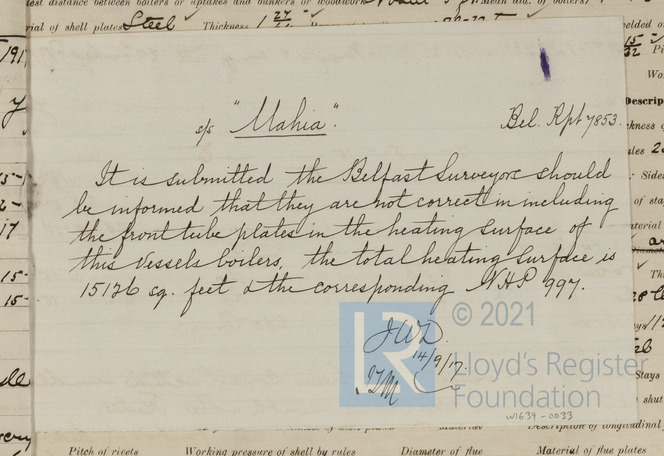 est distance between boilers or uptakes and bunkers or woodwork
Mean dia. of boilers
rial of shell plates Steel Thickness 1 27/32
s/s "Mahia". Bel. Rpt 7853.
It is submitted the Belfast Surveyors should
be informed that they are not correct in including
the front tube plates in the heating surface of
this vessels boilers, the total heating surface is
15126 sq. feet & the corresponding NHP 997.
JWD.
14/9/17.
© 2021
LR
Lloyd's Register
Foundation
W1639-0033
Pitch of rivets Working pressure of shell by rules Diameter of flue Material of flue plates